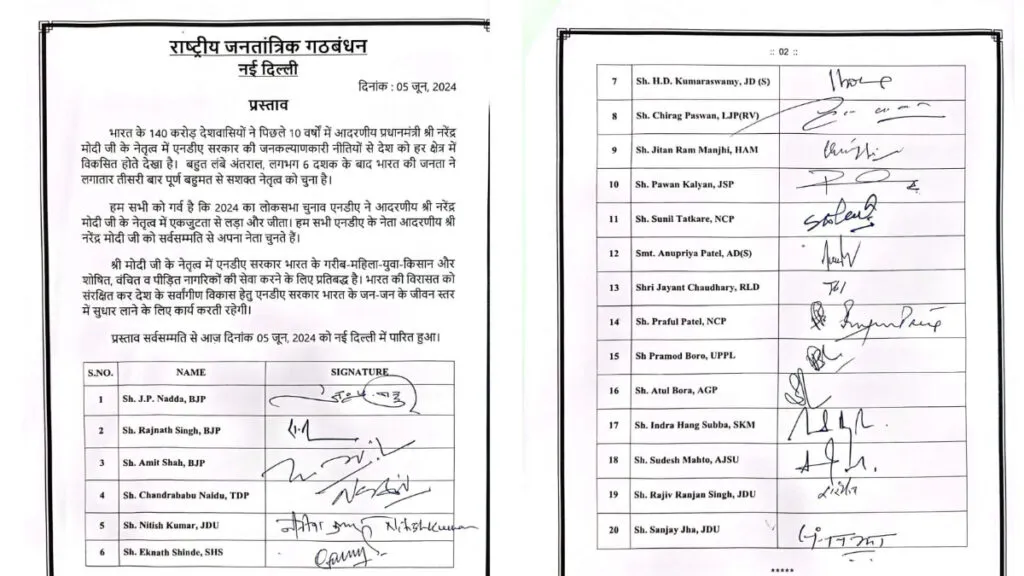 राष्ट्रीय जनतांत्रिक गठबंधन
नई दिल्ली
दिनांक : 05 जून, 2024
प्रस्ताव
भारत के 140 करोड़ देशवासियों ने पिछले 10 वर्षों में आदरणीय प्रधानमंत्री श्री नरेंद्र
मोदी जी के नेतृत्व में एनडीए सरकार की जनकल्याणकारी नीतियों से देश को हर क्षेत्र में
विकसित होते देखा है। बहुत लंबे अंतराल, लगभग 6 दशक के बाद भारत की जनता ने
लगातार तीसरी बार पूर्ण बहुमत से सशक्त नेतृत्व को चुना है।
हम सभी को गर्व है कि 2024 का लोकसभा चुनाव एनडीए ने आदरणीय श्री नरेंद्र
मोदी जी के नेतृत्व में एकजुटता से लड़ा और जीता। हम सभी एनडीए के नेता आदरणीय श्री
नरेंद्र मोदी जी को सर्वसम्मति से अपना नेता चुनते हैं।
श्री मोदी जी के नेतृत्व में एनडीए सरकार भारत के गरीब-महिला-युवा-किसान और
शोषित, वंचित व पीड़ित नागरिकों की सेवा करने के लिए प्रतिबद्ध है। भारत की विरासत को
संरक्षित कर देश के सर्वांगीण विकास हेतु एनडीए सरकार भारत के जन-जन के जीवन स्तर
में सुधार लाने के लिए कार्य करती रहेगी।
प्रस्ताव सर्वसम्मति से आज दिनांक 05 जून, 2024 को नई दिल्ली में पारित हुआ।
S.NO. NAME SIGNATURE
1 Sh. J.P. Nadda, BJP
2 Sh. Rajnath Singh, BJP
3 Sh. Amit Shah, BJP
4 Sh. Chandrababu Naidu, TDP
5 Sh. Nitish Kumar, JDU नीतीश कुमार Nitish Kumar
6 Sh. Eknath Shinde, SHS
:: 02 ::
7 Sh. H.D. Kumaraswamy, JD (S)
8 Sh. Chirag Paswan, LJP(RV)
9 Sh. Jitan Ram Manjhi, HAM
10 Sh. Pawan Kalyan, JSP
11 Sh. Sunil Tatkare, NCP
12 Smt. Anupriya Patel, AD(S)
13 Shri Jayant Chaudhary, RLD
14 Sh. Praful Patel, NCP
15 Sh Pramod Boro, UPPL
16 Sh. Atul Bora, AGP
17 Sh. Indra Hang Subba, SKM
18 Sh. Sudesh Mahto, AJSU
19 Sh. Rajiv Ranjan Singh, JDU
20 Sh. Sanjay Jha, JDU
*****